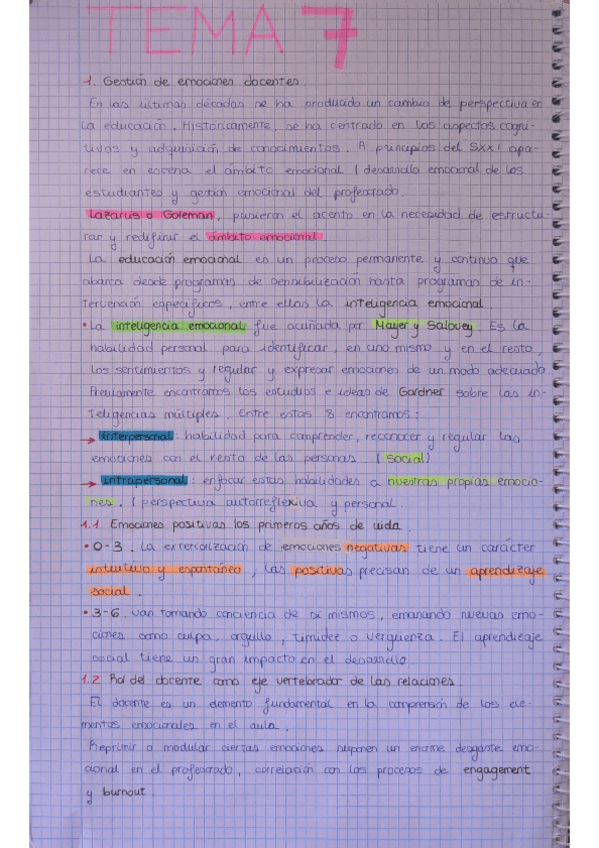 TEMA 7
1. Gestión de emociones docentes.
En las últimas décadas se ha producido un cambio de perspectiva en
la educación. Históricamente, se ha centrado en los aspectos cogni-
tivos y adquisición de conocimientos. A principios del SXXI apa-
rece en escena el ámbito emocional (desarrollo emocional de los
estudiantes y gestión emocional del profesorado.
Lazarus o Goleman, pusieron el acento en la necesidad de estructu-
rar y redifinir el ámbito emocional.
La educación emocional es un proceso permanente y continuo que
abarca desde programas de sensibilización hasta programas de in-
tervención específicos, entre ellas la inteligencia emocional.
• La inteligencia emocional fue acuñada por Mayer y Salovey. Es la
habilidad personal para identificar, en uno mismo y en el resto,
los sentimientos y regular y expresar emociones de un modo adecuado.
Previamente encontramos los estudios e ideas de Gardner sobre las in-
teligencias múltiples. Entre estas 8 encontramos:
→ interpersonal: habilidad para comprender, reconocer y regular las
emociones con el resto de las personas. (social)
→ intrapersonal: enfocar estas habilidades a nuestras propias emocio-
nes. (perspectiva autorreflexiva y personal.
1.1 Emociones positivas los primeros años de vida.
• 0-3. La exteriorización de emociones negativas tiene un carácter
intuitivo y espontáneo, las positivas precisan de un aprendizaje
social.
• 3-6. van tomando conciencia de sí mismos, emanando nuevas emo-
ciones como culpa, orgullo, timidez o vergüenza. El aprendizaje
social tiene un gran impacto en el desarrollo.
1.2 Rol del docente como eje vertebrador de las relaciones.
El docente es un elemento fundamental en la comprensión de los ele-
mentos emocionales en el aula.
Reprimir o modular ciertas emociones suponen un enorme desgaste emo-
cional en el profesorado, correlación con los procesos de engagement
y burnout.